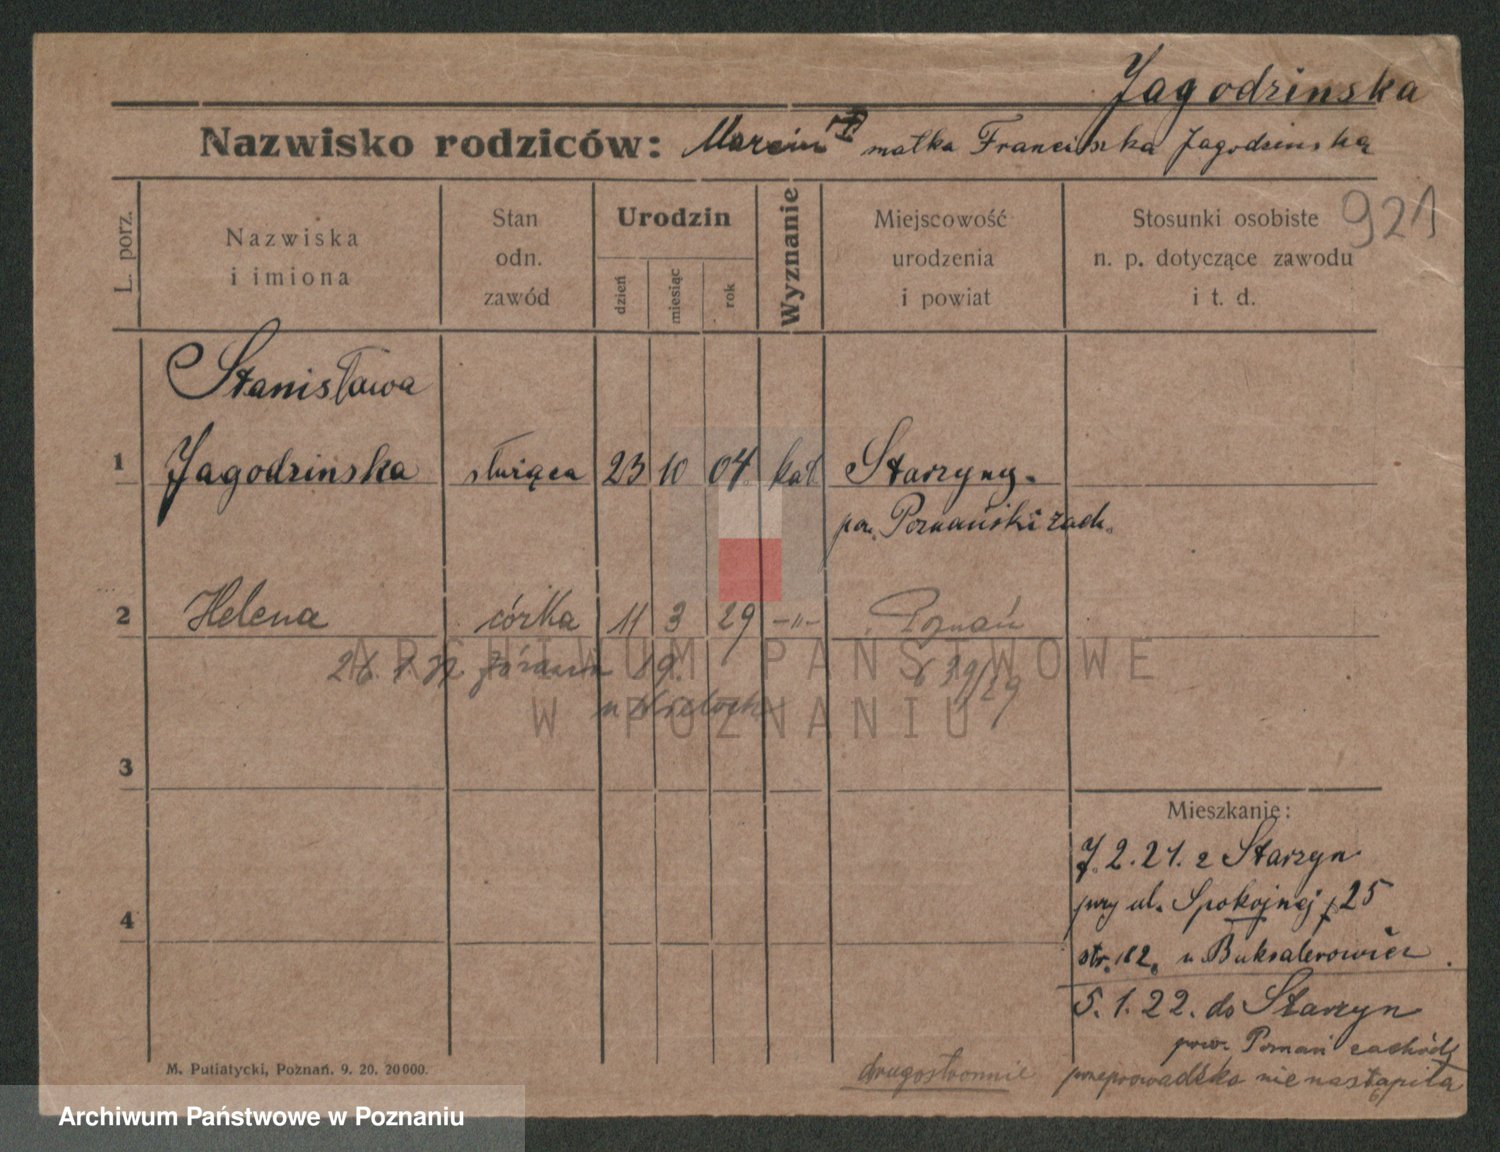 Jagodzinska
Nazwisko rodziców: Marcin matka Franciszka Jagodzinska
921
L. porz.
Nazwiska
i imiona
Stan
odn.
zawód
Urodzin
dzień
miesiąc
rok
Wyznanie
Miejscowość
urodzenia
i powiat
Stosunki osobiste
n. p. dotyczące zawodu
i t. d.
Stanisława
1 Jagodzinska służąca 23 10 04 kat Starzyny.
pow. Poznański zach.
2 Helena córka 11 3 29 -"- Poznań
29/29
3
Mieszkanie:
7.2.21. z Starzyn
przy ul. Spokojnej 25
4
str. 182. u
5.1.22. do Starzyn
pow. Poznań zachód
przeprowadzka nie nastąpiła
drugostronnie
M. Putiatycki, Poznań. 9. 20. 20000.
ARCHIWUM PAŃSTWOWE
W POZNANIU
Archiwum Państwowe w Poznaniu